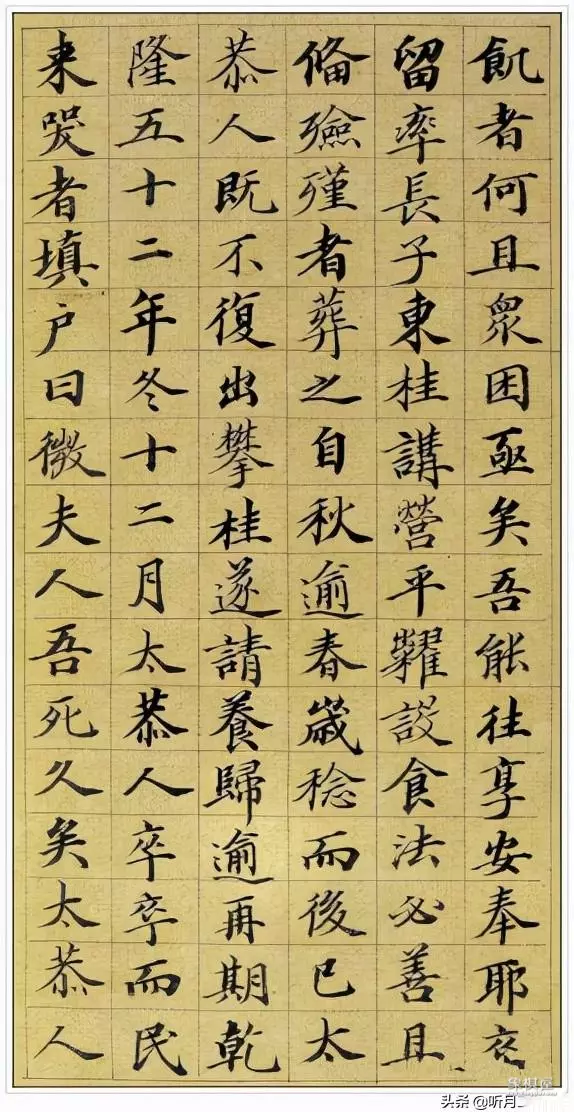 飢者何且眾困亟矣吾能往享安奉耶
留率長子東桂講營平糶設食法必善且
偹殮殣者葬之自秋逾春歲稔而後已太
恭人既不復出攀桂遂請養歸逾再期乾
隆五十二年冬十二月太恭人卒卒而民
来哭者填户曰微夫人吾死久矣太恭人
头条 @听月_